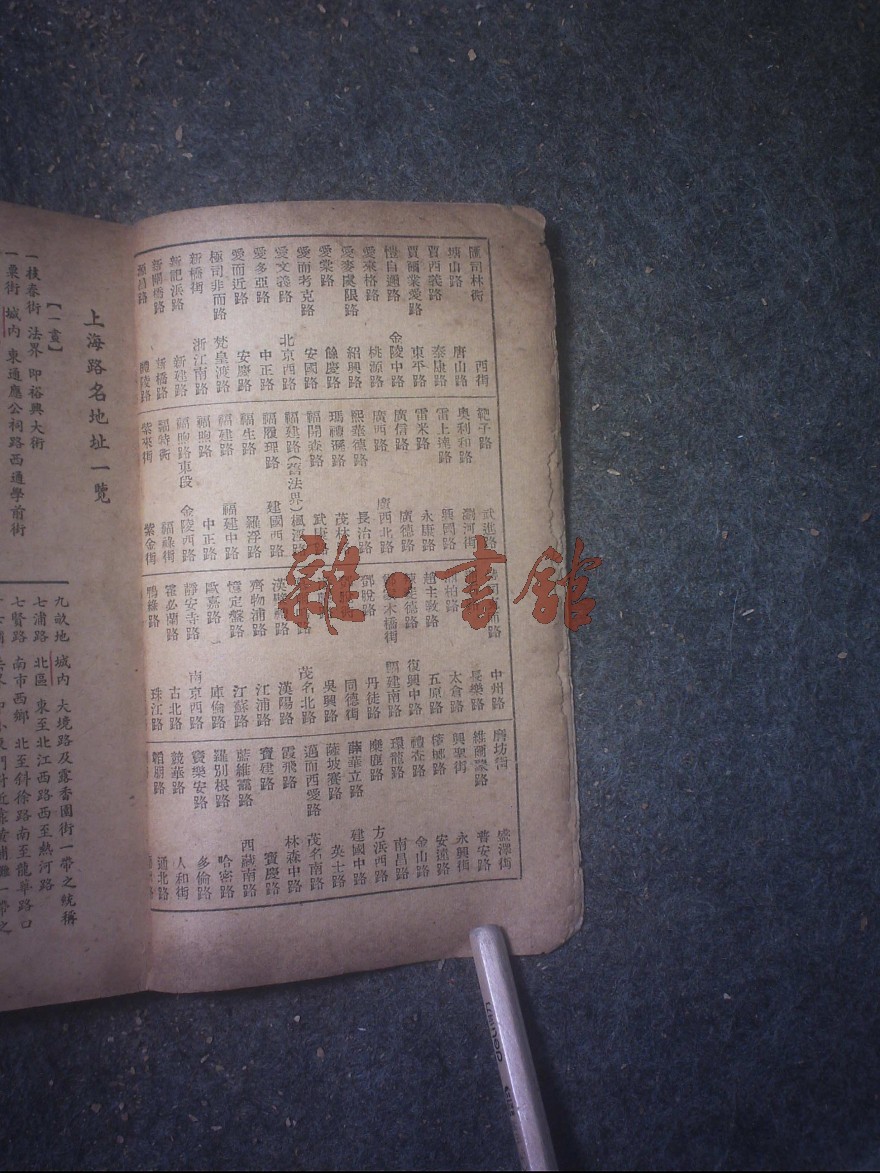 匯司林街 西街
塘山路 唐山路
賈西義路 泰康路
賈爾業愛路 東平路
愷自邇路 金陵中路
愛來格路 桃源路
愛麥虞限路 紹興路
愛棠路 餘慶路
愛而考克路 安國路
愛文義路 北京西路
愛多亞路 中正路
愛而近路 安慶路
極司非而路 梵皇渡路
新橋街 浙江南路
新記浜路 新建路
新閘橋路 新橋路
路 醴陵路
範子路 武進路
奧利和路 瀏河街
雷上達路 興國路
雷米路 永康路
廣信路 廣德路
廣西路 廣西北路
熙華德路 長治路
瑪禮遜路 茂林路
福開森路 武康路
福建路(舊法界) 楓河路
福履理路 建國西路
福生路 羅浮路
福建路 福建中路
福煦路 中正路
福煦路東段 金陵西路
福特街 福祿街
紫來街 紫金街
中州路
長樂路
趙主教路 太倉路
五原路
復興中路
木橋街 福建南路
鄧脫路 丹徒路
同德街
吳興路
茂名北路
漢 漢陽路
齊物浦路 江浦路
憶定盤路 江蘇路
歐嘉路 庫倫路
靜安寺路 南京西路
霍必蘭路 古北路
鴨綠路 珠江路
磨坊街 盛澤街
維爾蒙路 普安路
興聖街 永興街
檳榔路 安遠路
禮查路 金山路
環龍路 南昌路
麋鹿路 方浜西路
薛華立路 建國中路
薩坡賽路 英士路
邁而西愛路 茂名南路
霞飛路 林森中路
寶建路 寶慶路
藍維藹路 西藏南路
羅別根路 哈密路
竇樂安路 多倫路
競華路 人和街
賴朋路 通北路
上海路名地址一覽
【一畫】
一枝春街 法界 即裕興大街
一粟街 城內 東通應公祠路西通學前街
九畝地 城內 大境路及露香園街一帶之統稱
七浦路 北區 東至北江西路西至熱河路
七賢路 南市西鄉 北至斜徐路南至龍華路口
雜·書館